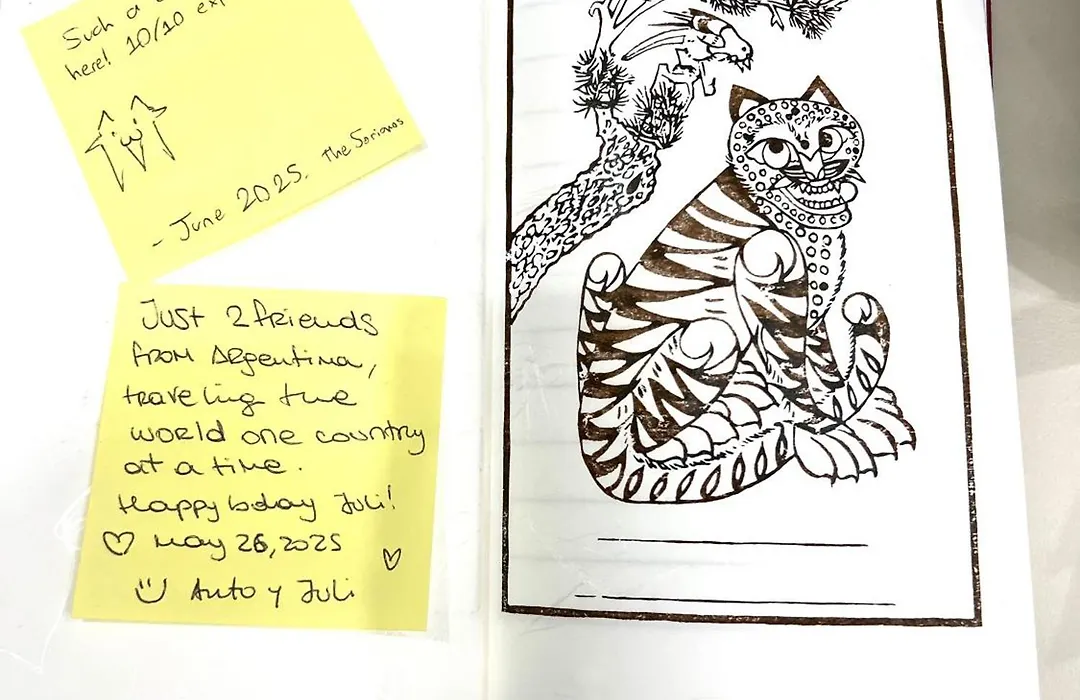 Such a
here! 10/10
- June 2025. The Sorianos
Just 2 friends
from Argentina,
traveling the
world one country
at a time.
Happy bday Juli!
May 26, 2025
Anto y Juli